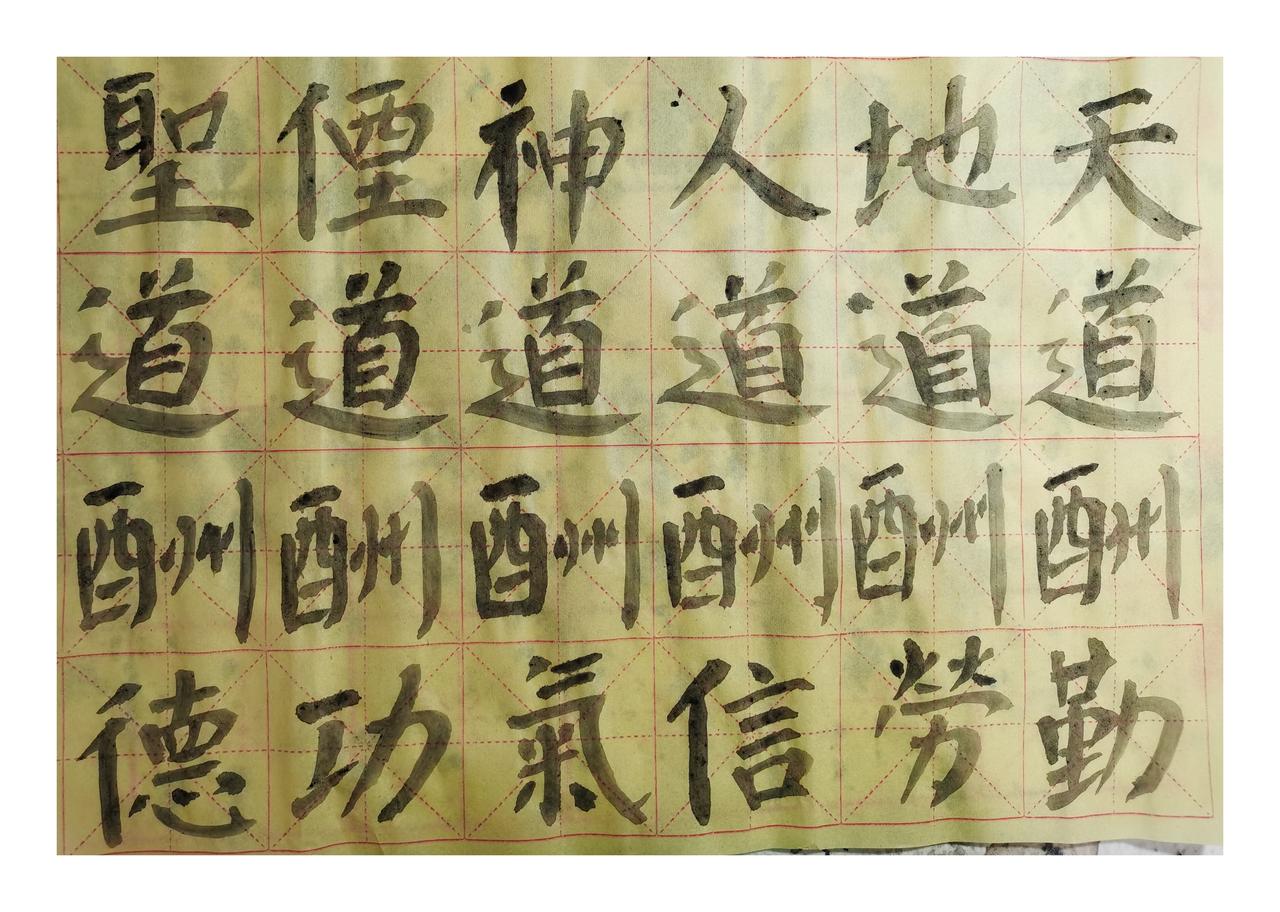 天道酬勤
地道酬勞
人道酬信
神道酬氣
僊道酬功
聖道酬德